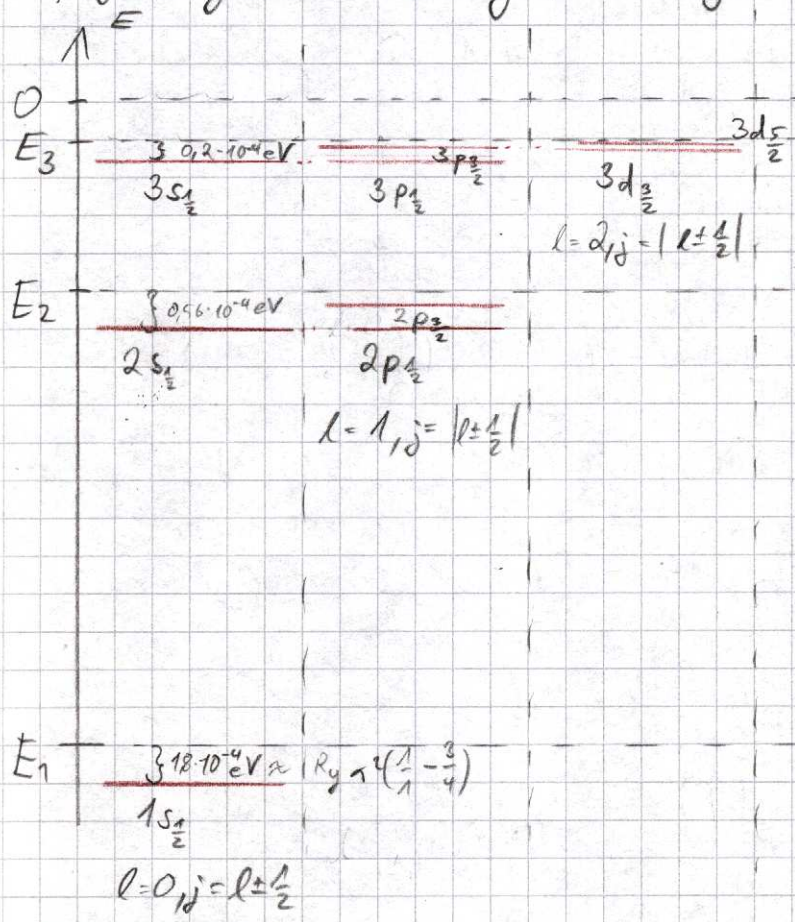 E
0
E₃
} 0,2·10⁻⁴ eV
3s_{1/2}
3p_{3/2}
3p_{1/2}
3d_{5/2}
3d_{3/2}
l = 2, j = |l ± 1/2|
E₂
} 0,56·10⁻⁴ eV
2s_{1/2}
2p_{3/2}
2p_{1/2}
l = 1, j = |l ± 1/2|
E₁
} 1,8·10⁻⁴ eV ≈ Ry α²(1/1 - 3/4)
1s_{1/2}
l = 0, j = l ± 1/2